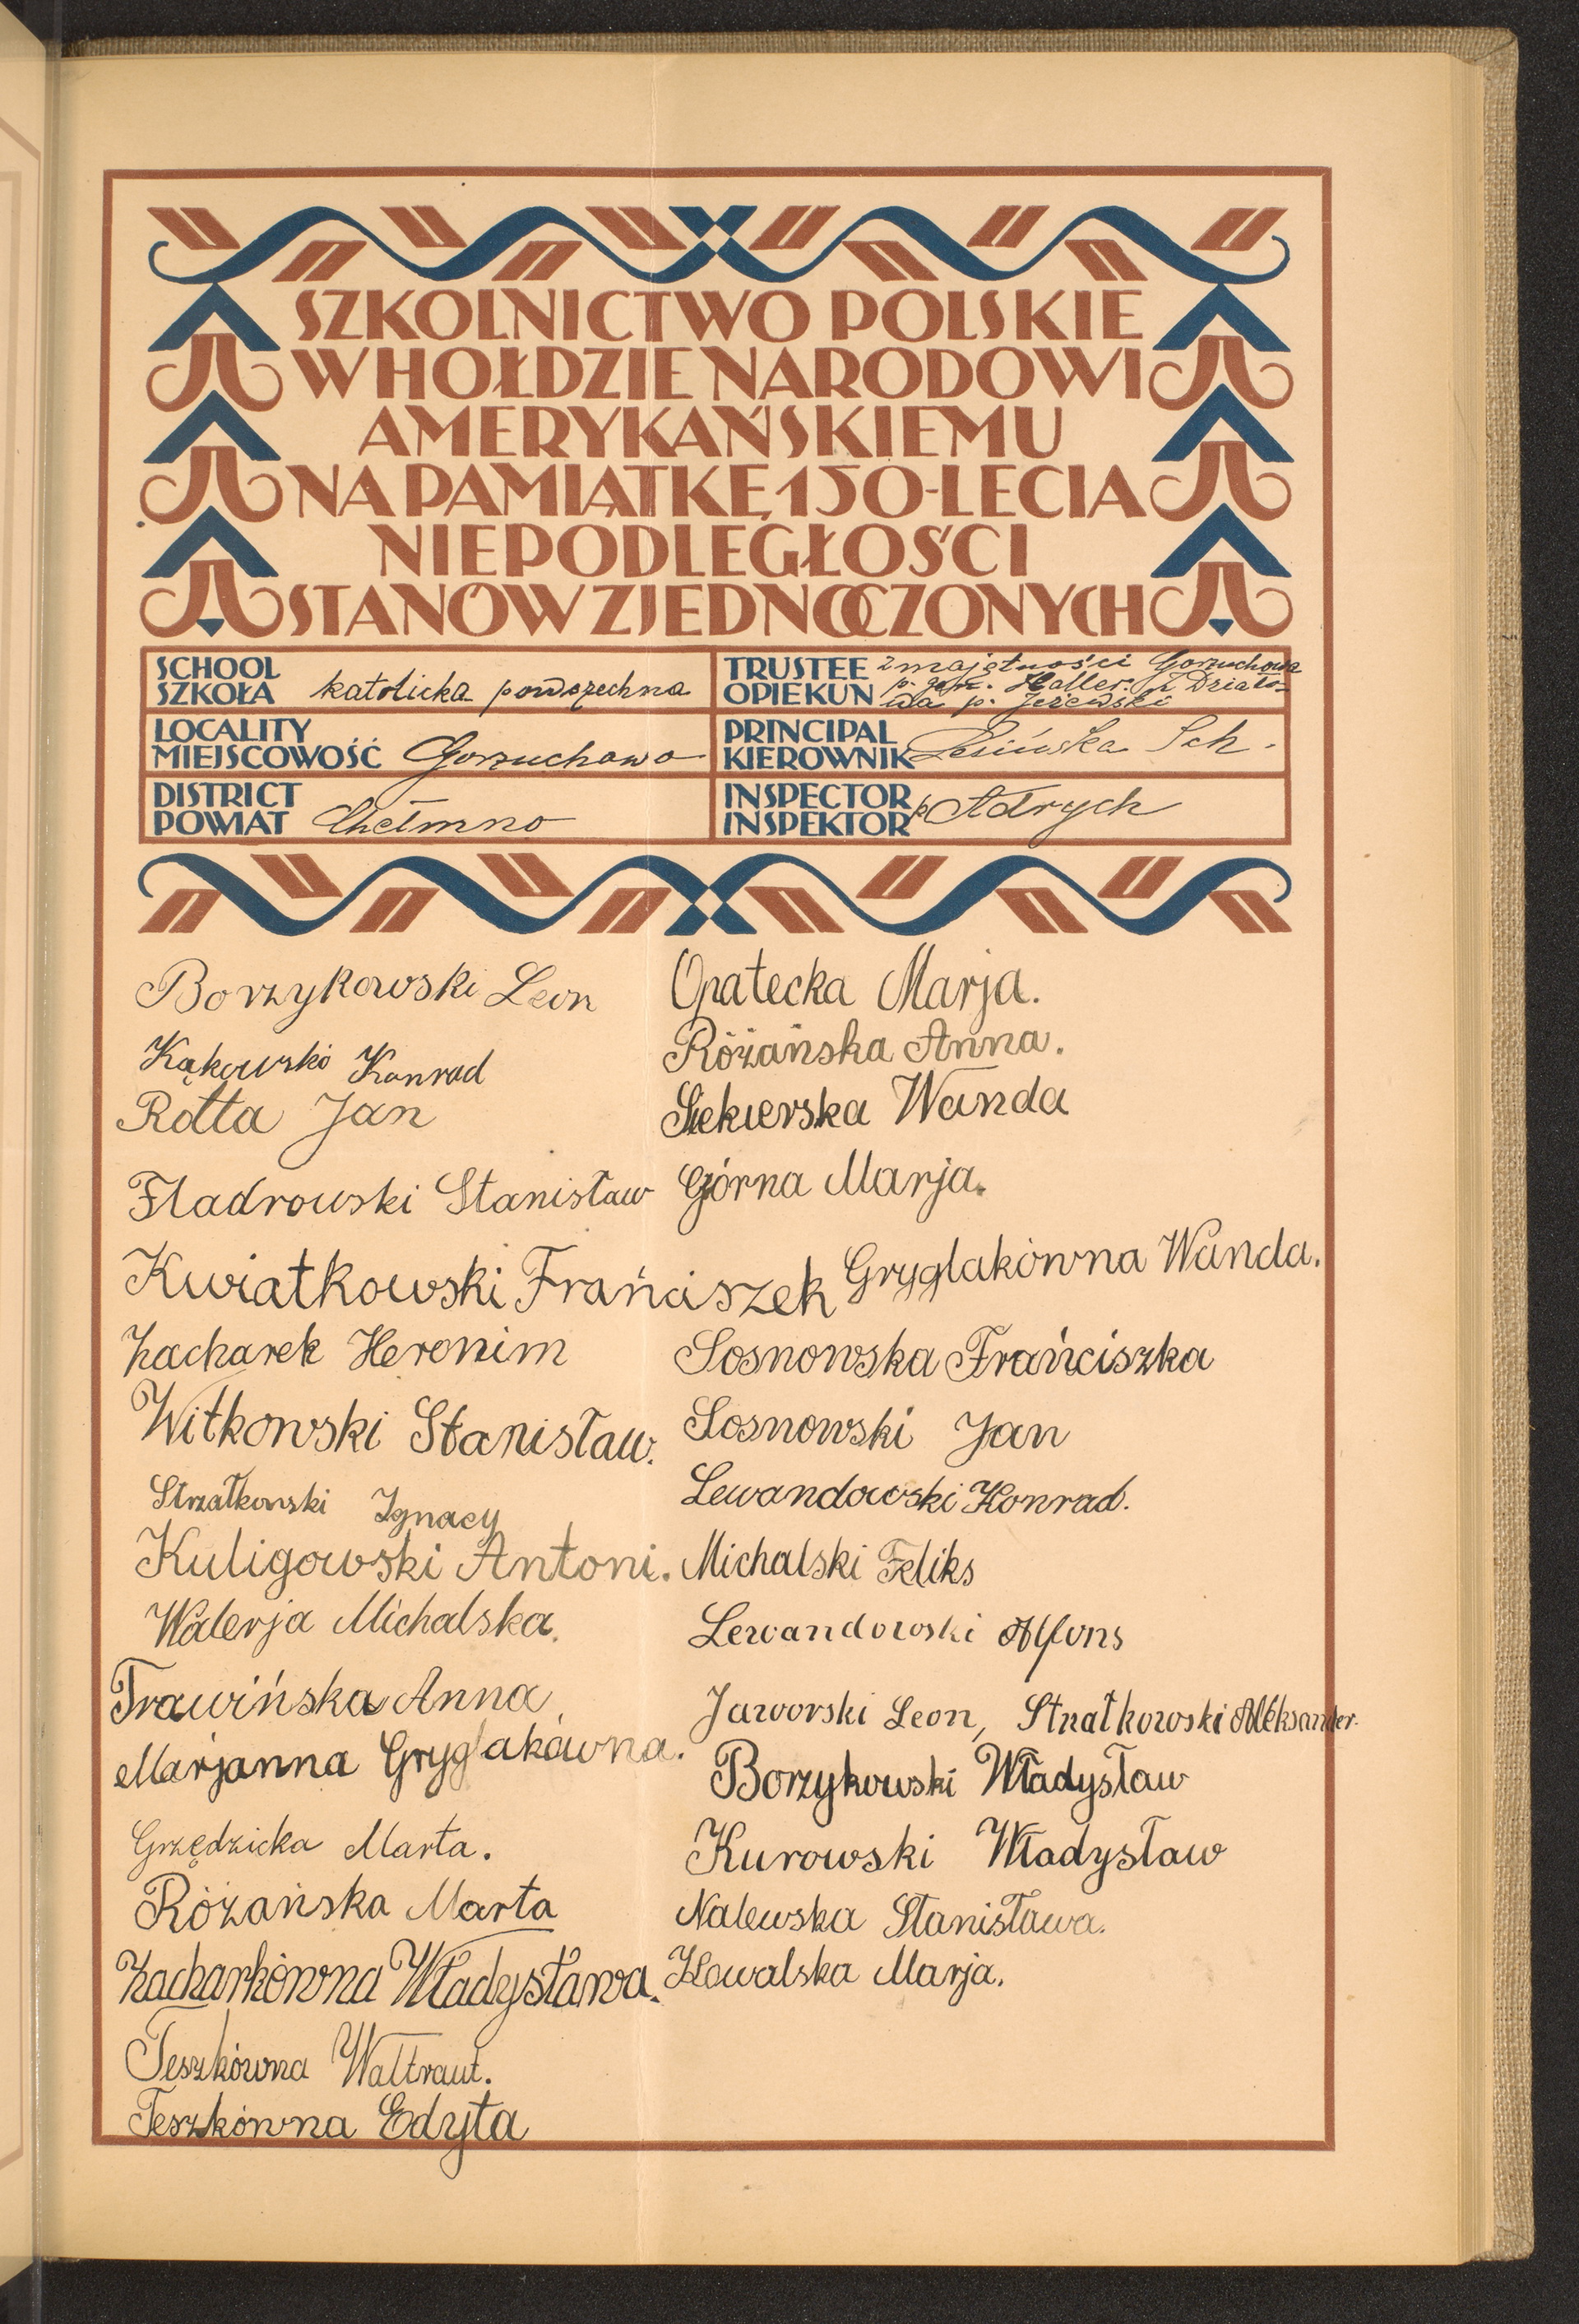 SZKOLNICTWO POLSKIE
W HOŁDZIE NARODOWI
AMERYKAŃSKIEMU
NA PAMIĄTKĘ 150-LECIA
NIEPODLEGŁOŚCI
STANÓW ZJEDNOCZONYCH
SCHOOL
SZKOŁA katolicka powszechna
TRUSTEE z majętności Gorzuchowa
OPIEKUN p. gen. Haller. z Działo-
wa p. Jeżewski
LOCALITY
MIEJSCOWOŚĆ Gorzuchowo
PRINCIPAL
KIEROWNIK Lesińska Sch.
DISTRICT
POWIAT Chełmno
INSPECTOR
INSPEKTOR p Adrych
Borzykowski Leon
Kąkowski Konrad
Rotta Jan
Fladrowski Stanisław
Kwiatkowski Frańciszek
Zacharek Heronim
Witkowski Stanisław.
Strzałkowski Ignacy
Kuligowski Antoni.
Walerja Michalska.
Trawińska Anna
Marjanna Gryglakówna.
Grzędzicka Marta.
Różańska Marta
Zacharkówna Władysława.
Teszkówna Waltraut.
Teszkówna Edyta
Opatecka Marja.
Różańska Anna.
Siekierska Wanda
Górna Marja.
Gryglakówna Wanda.
Sosnowska Frańciszka
Sosnowski Jan
Lewandowski Konrad.
Michalski Feliks
Lewandowski Alfons
Jaworski Leon, Strzałkowski Aleksander.
Borzykowski Władysław
Kurowski Władysław
Nalewska Stanisława.
Kowalska Marja.